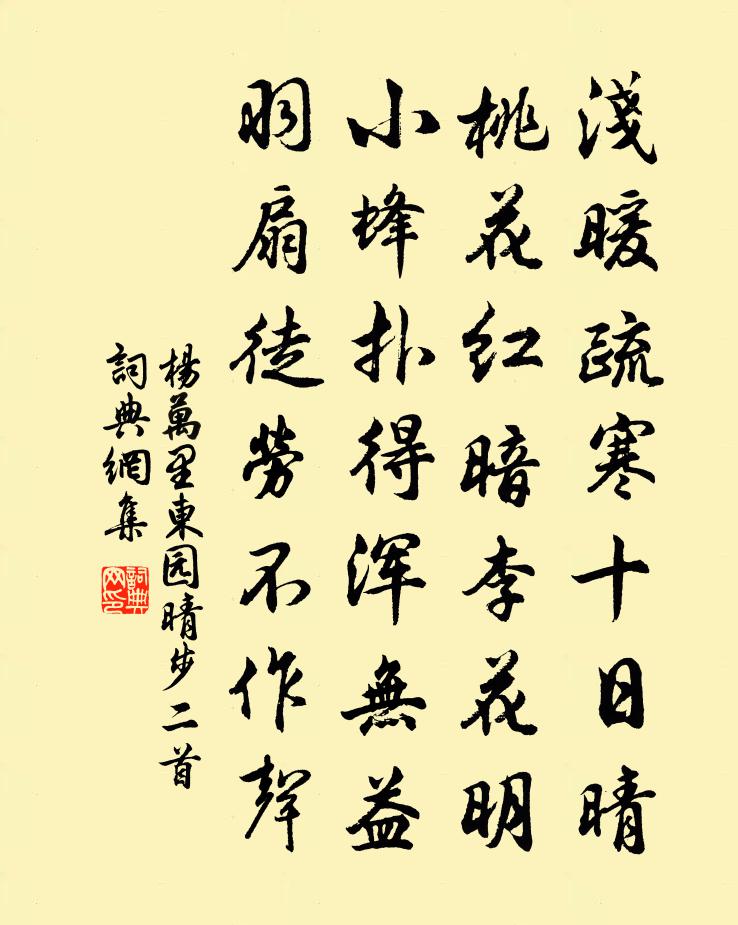 淺暖疏寒十日晴
桃花红暗李花明
小蜂扑得浑無益
羽扇徒勞不作聲
楊萬里東园晴步二首
詞典網集
詞典網印